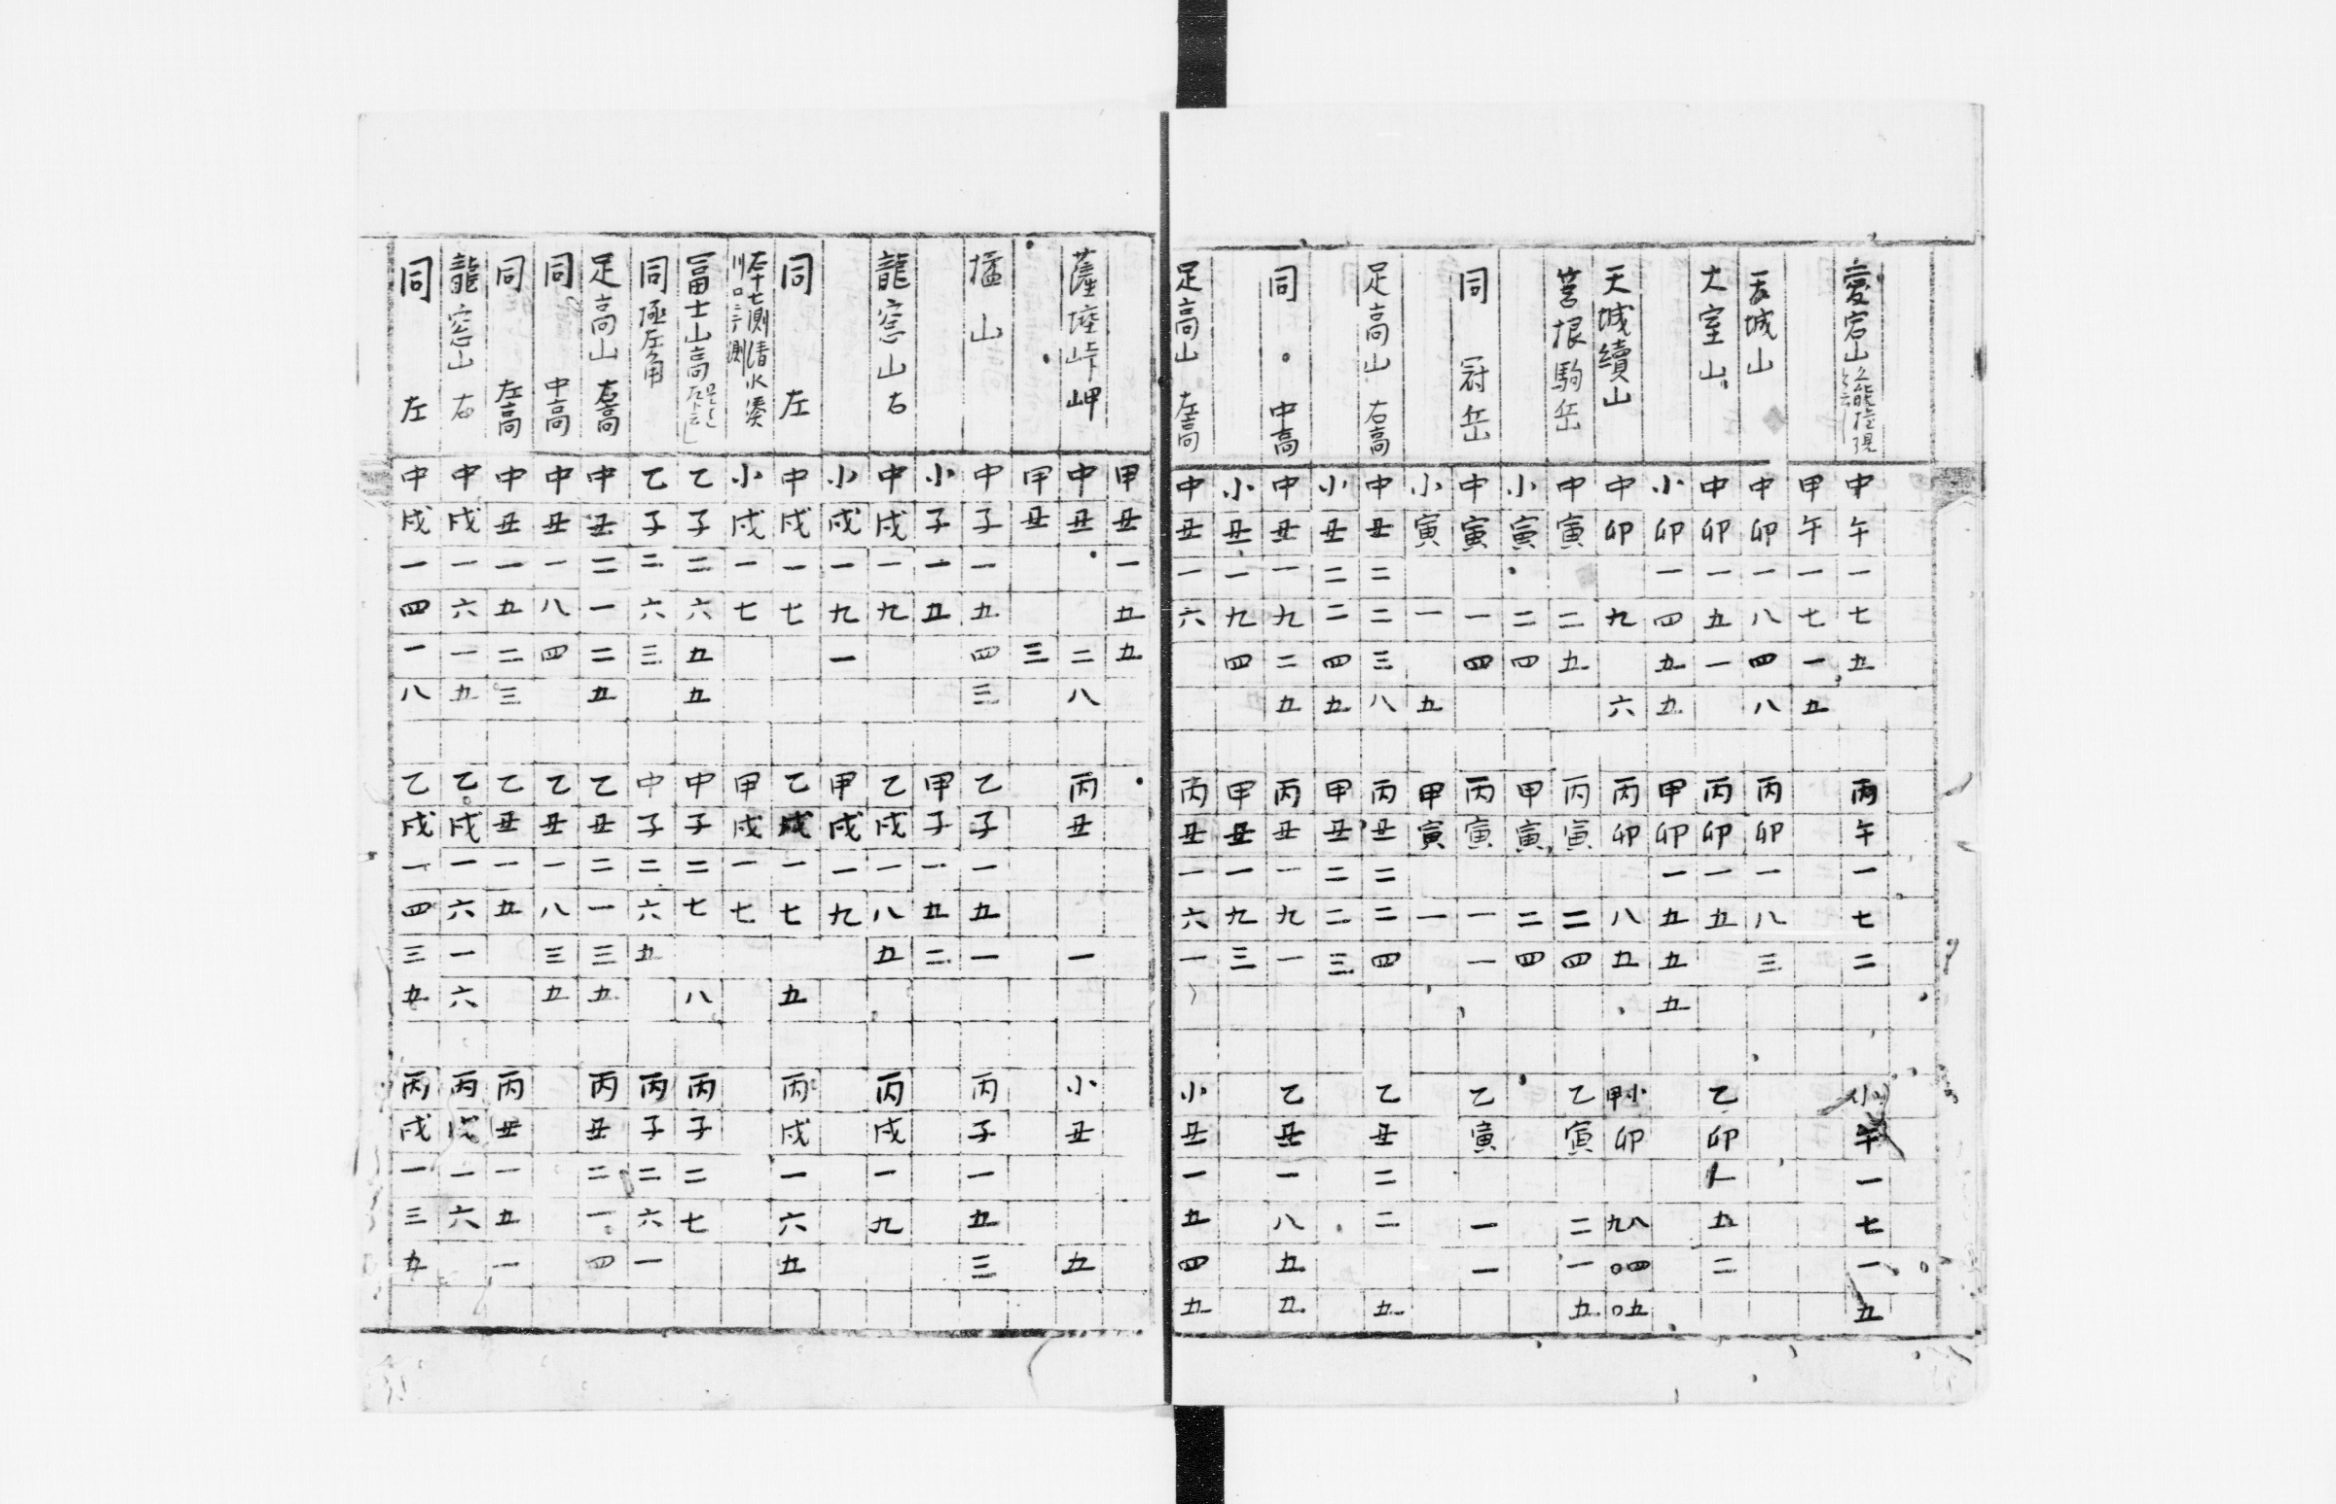 愛宕山 中午一七五 丙午一七二 小午一七一五
甲午一七一五
天城山 中卯一八四八 丙卯一八三
大室山 中卯一五一 丙卯一五 乙卯一五二
小卯一四五五 甲卯一五五五
天城續山 中卯九六 丙卯八五 甲小卯九八〇四〇五
筥根駒岳 中寅二五 丙寅二四 乙寅二一五
小寅二四 甲寅二四
同 冠岳 中寅一四 丙寅一一 乙寅一一
小寅一五 甲寅一
足高山 右高 中丑二二三八 丙丑二二四 乙丑二二五
小丑二二四五 甲丑二二三
同 中高 中丑一九二五 丙丑一九一 乙丑一八五五
小丑一九四 甲丑一九三
足高山 左高 中丑一六 丙丑一六一 小丑一五四五
甲丑一五五
薩埵峠岬 中丑二八 丙丑一 小丑五
甲丑三
猛山 中子一五四三 乙子一五一 丙子一五三
小子一五 甲子一五二
龍窓山 右 中戌一九 乙戌一八五 丙戌一九
小戌一九一 甲戌一九
同 左 中戌一七 乙戌一七五 丙戌一六五
小戌一七 甲戌一七
冨士山高 乙子二六五五 中子二七八 丙子二七
同極左角 乙子二六三 中子二六五 丙子二六一
足高山 右高 中丑二一二五 乙丑二一三五 丙丑二一四
同 中高 中丑一八四 乙丑一八三五
同 左高 中丑一五二三 乙丑一五 丙丑一五一
龍窓山 右 中戌一六一五 乙戌一六一六 丙戌一六
同 左 中戌一四一八 乙戌一四三五 丙戌一三五